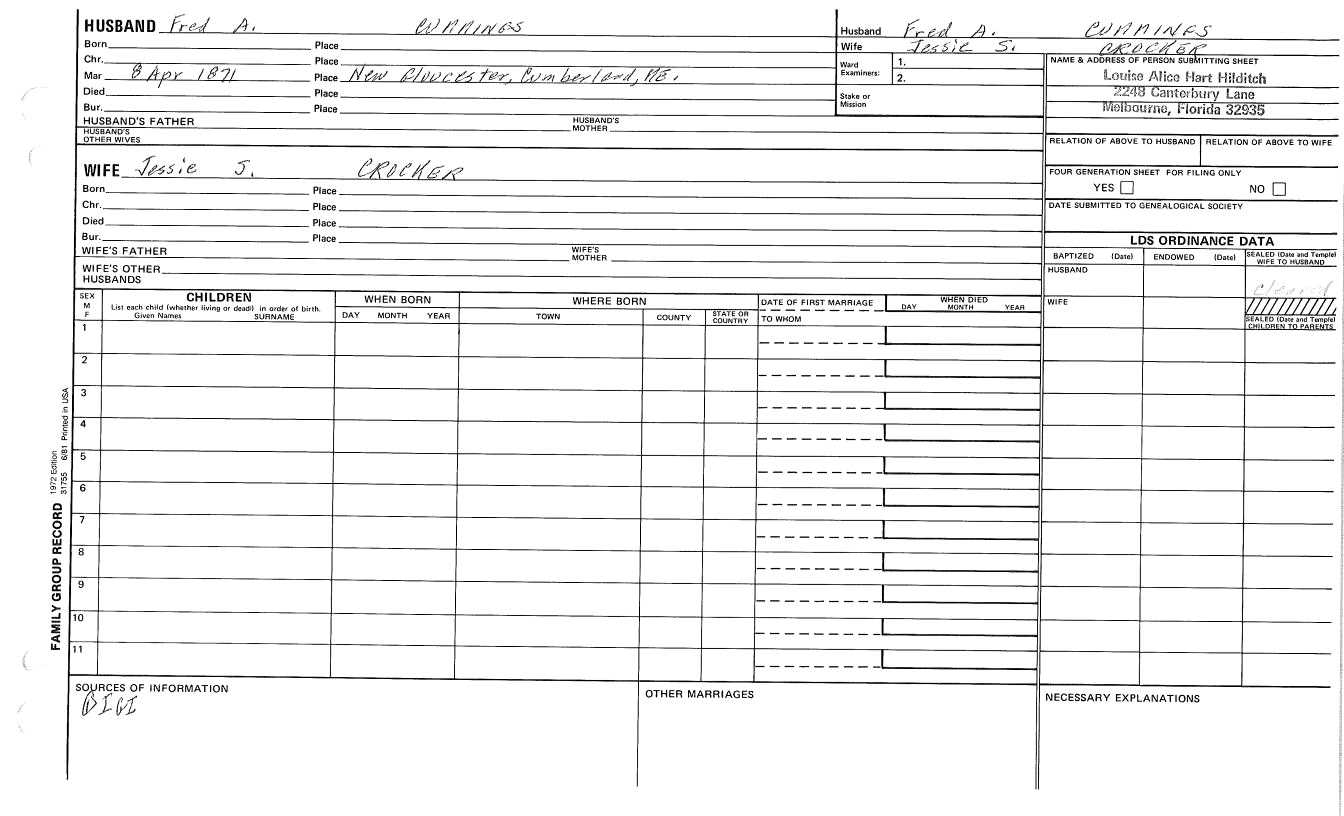 HUSBAND Fred A. CUMMINGS
Born Place
Chr. Place
Mar 8 Apr 1871 Place New Gloucester, Cumberland, ME.
Died Place
Bur. Place
HUSBAND'S FATHER HUSBAND'S MOTHER
HUSBAND'S OTHER WIVES
WIFE Jessie S. CROCKER
Born Place
Chr. Place
Died Place
Bur. Place
WIFE'S FATHER WIFE'S MOTHER
WIFE'S OTHER HUSBANDS
Husband Fred A. CUMMINGS
Wife Jessie S. CROCKER
Ward Examiners: 1.
2.
Stake or Mission
NAME & ADDRESS OF PERSON SUBMITTING SHEET
Louise Alice Hart Hilditch
2248 Canterbury Lane
Melbourne, Florida 32935
RELATION OF ABOVE TO HUSBAND RELATION OF ABOVE TO WIFE
FOUR GENERATION SHEET FOR FILING ONLY
YES NO
DATE SUBMITTED TO GENEALOGICAL SOCIETY
LDS ORDINANCE DATA
BAPTIZED (Date) ENDOWED (Date) SEALED (Date and Temple) WIFE TO HUSBAND
HUSBAND
Cleared
WIFE
SEALED (Date and Temple) CHILDREN TO PARENTS
SEX M F
CHILDREN
List each child (whether living or dead) in order of birth.
Given Names SURNAME
WHEN BORN
DAY MONTH YEAR
WHERE BORN
TOWN COUNTY STATE OR COUNTRY
DATE OF FIRST MARRIAGE
TO WHOM
WHEN DIED
DAY MONTH YEAR
1
2
3
4
5
6
7
8
9
10
11
FAMILY GROUP RECORD 1972 Edition
31755 6/81 Printed in USA
SOURCES OF INFORMATION
IGI
OTHER MARRIAGES
NECESSARY EXPLANATIONS